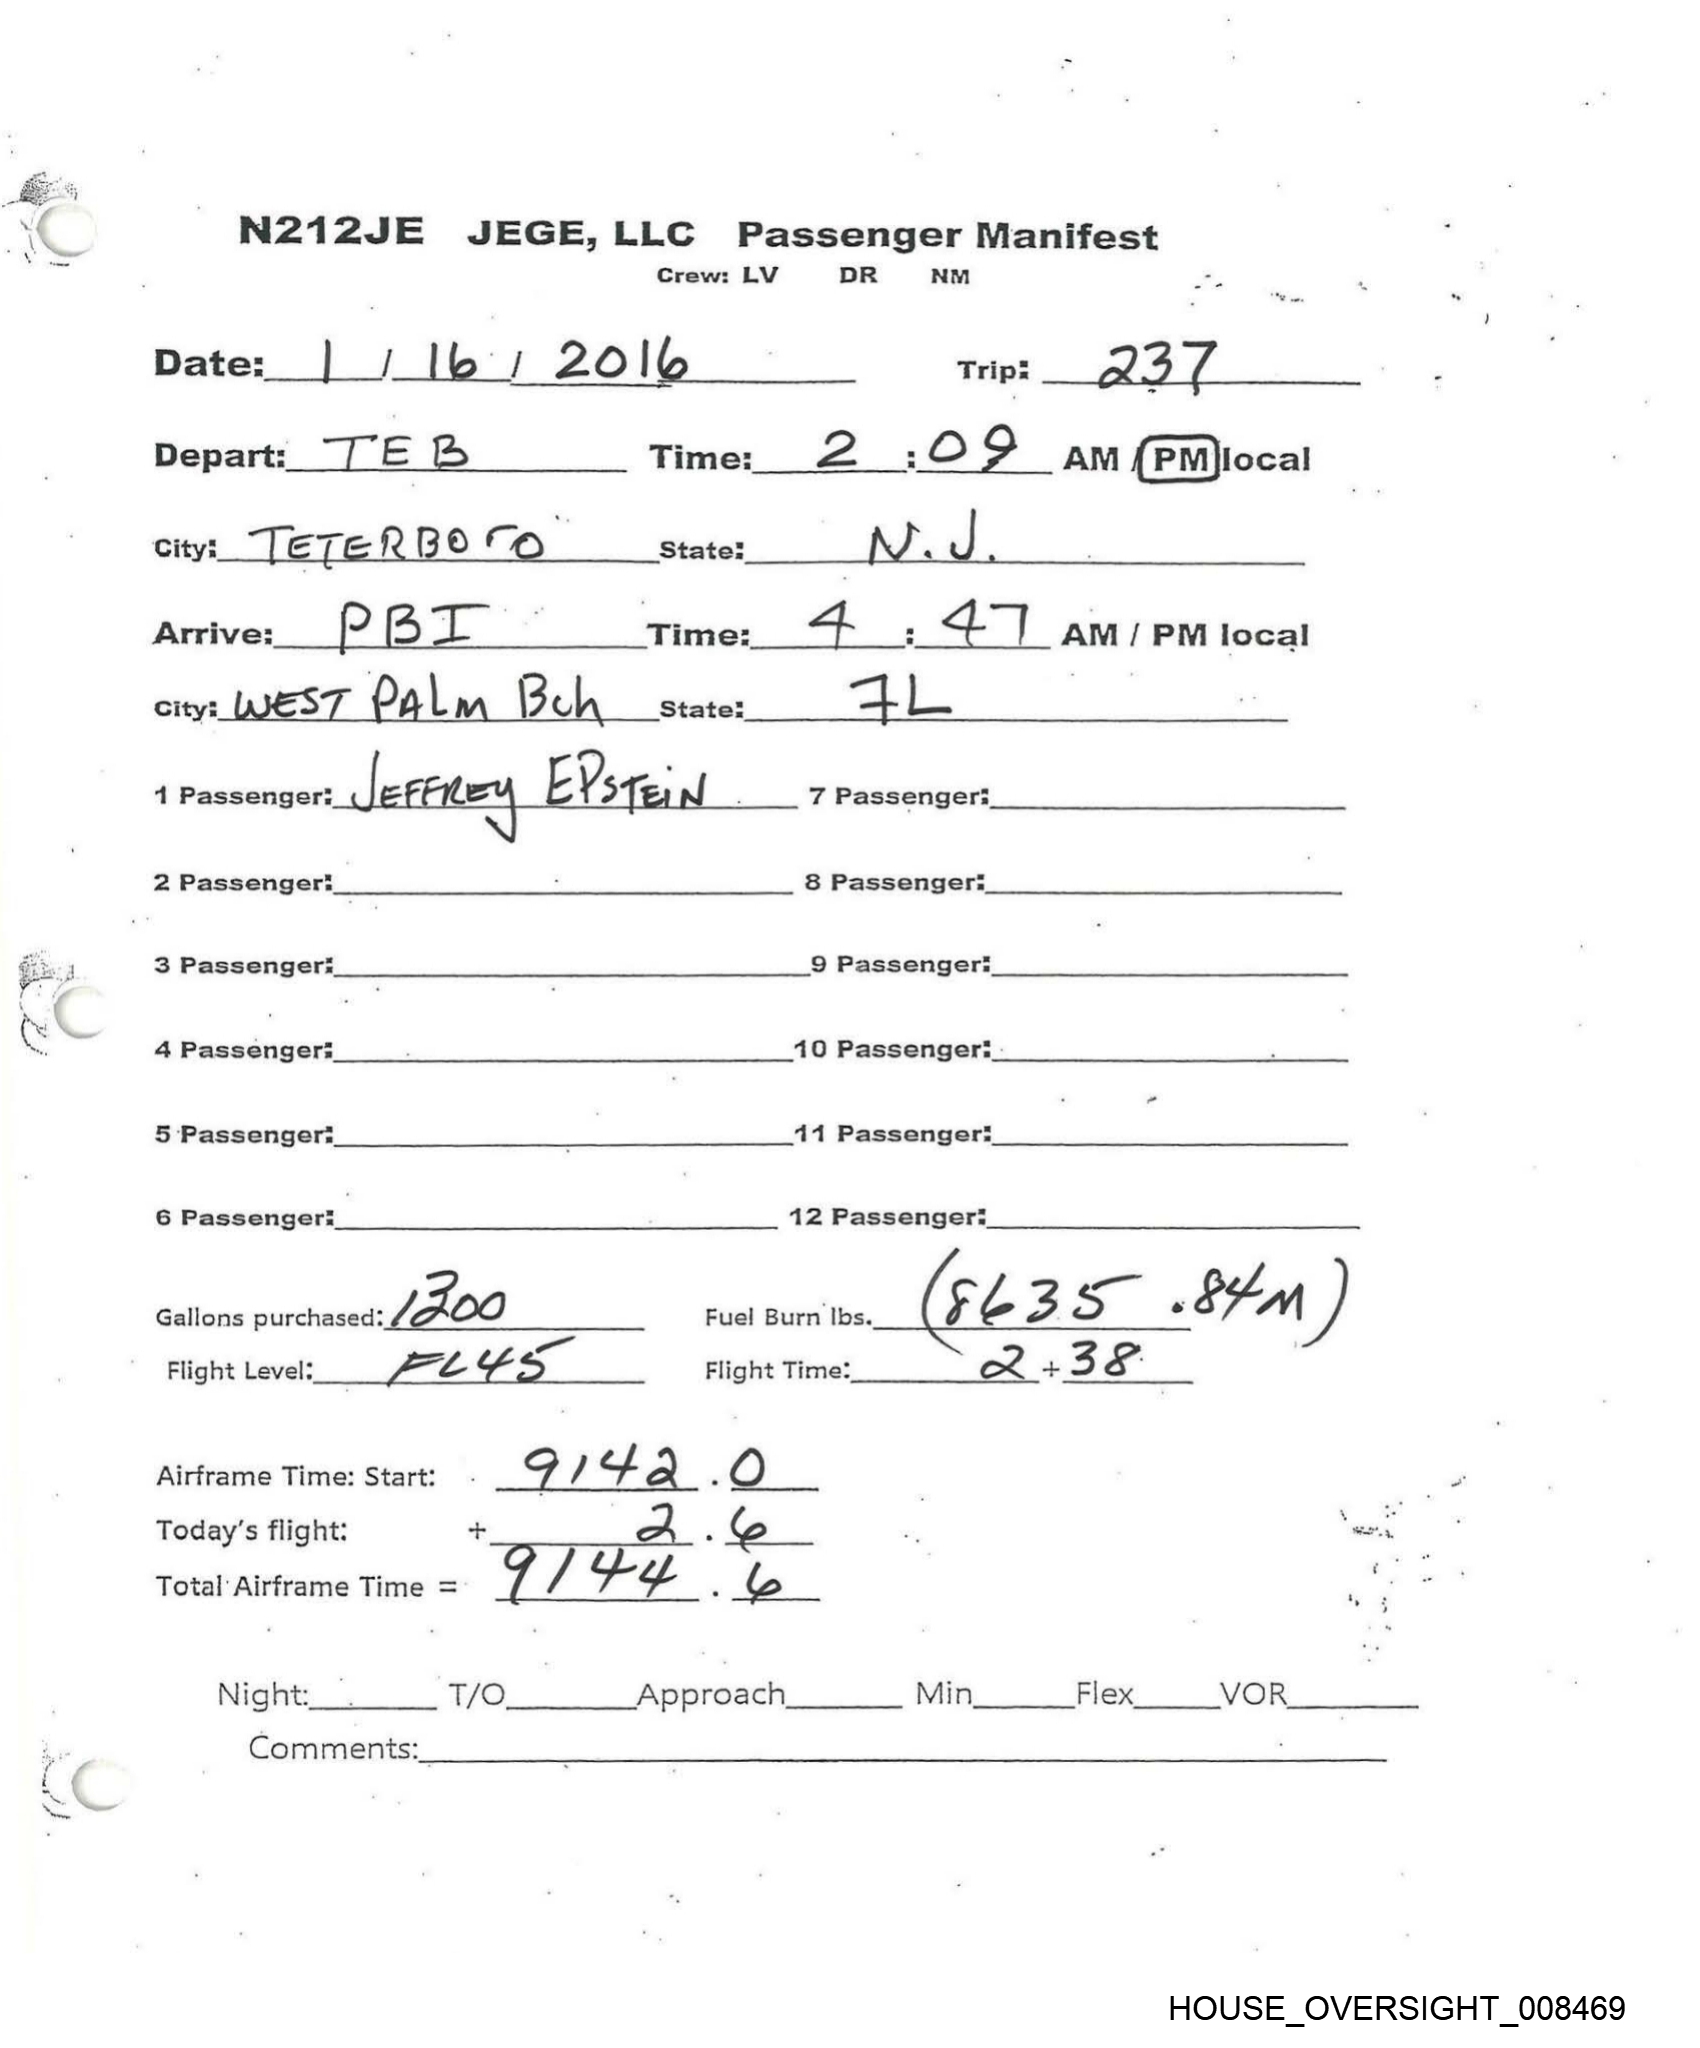 N212JE JEGE, LLC Passenger Manifest
Crew: LV DR NM
Date: 1 / 16 / 2016 Trip: 237
Depart: TEB Time: 2 : 09 AM / PM local
City: TETERBOro State: N.J.
Arrive: PBI Time: 4 : 47 AM / PM local
City: WEST PALm Bch State: FL
1 Passenger: JEFFREy EPSTEiN 7 Passenger:
2 Passenger: 8 Passenger:
3 Passenger: 9 Passenger:
4 Passenger: 10 Passenger:
5 Passenger: 11 Passenger:
6 Passenger: 12 Passenger:
Gallons purchased: 1300 Fuel Burn lbs. (8635 .84M)
Flight Level: FL45 Flight Time: 2 + 38
Airframe Time: Start: 9142 . 0
Today's flight: + 2 . 6
Total Airframe Time = 9144 . 6
Night: T/O Approach Min Flex VOR
Comments:
HOUSE_OVERSIGHT_008469